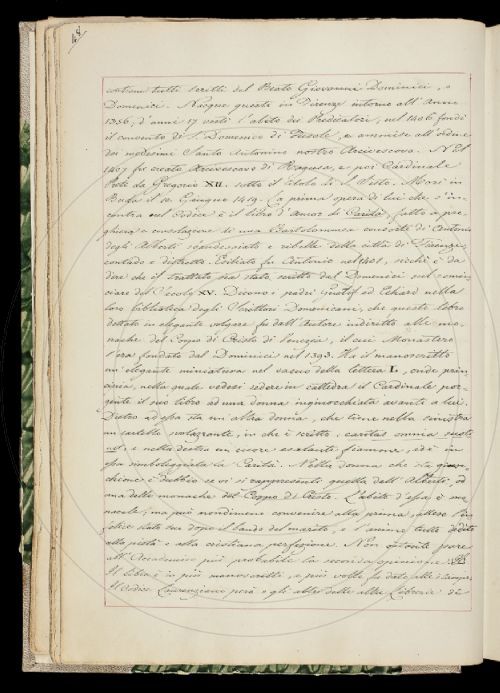 48
contiene tutti scritti del Beato Giovanni Dominici, o
Domenici. Nacque questi in Firenze intorno all'Anno
1356, d'anni 17 vestì l'abito dei Predicatori, nel 1406 fondò
il convento di S. Domenico di Fiesole, e ammise all'ordine
dei medesimi Santo Antonino nostro Arcivescovo. Nel
1407 fu creato Arcivescovo di Ragusa, e poi Cardinale
Prete da Gregorio XII. sotto il titolo di S. Sisto. Morì in
Buda il 10 Giugno 1419. La prima opera di lui che s'in-
contra nel Codice è il libro d'Amor di Carità, fatto a pre-
ghiera e consolazione di una Bartolommea consorte di Antonio
degli Alberti scandessiato e ribelle della città di Firenze,
contado e distretto. Esiliato fu Antonio nel 1401, sicchè è da
dire che il trattato sia stato scritto dal Domenici sul comin-
ciare del Secolo XV. Dicono i padri Quetif ed Echard nella
loro biblioteca degli Scrittori Domenicani, che questo libro
dettato in elegante volgare fu dall'Autore indiretto alle mo-
nache del Corpo di Cristo di Venezia, il cui Monastero
s'era fondato dal Dominici nel 1393. Ha il manoscritto
un'elegante miniatura nel vacuo della lettera L, onde prin-
cipia, nella quale vedesi sedere in cattedra il Cardinale por-
gente il suo libro ad una donna inginocchiata avanti a lui.
Dietro ad essa sta un'altra donna, che tiene nella sinistra
un cartello svolazzante, in che è scritto, caritas omnia susti
net, e nella destra un cuore esalante fiamme, ed è in
essa simboleggiata la Carità. Nella donna che sta ginoc-
chione è dubbio se vi si rappresenti quella dell'Alberti, od
una delle monache del Corpo di Cristo. L'abito d'essa è mo-
nacale, ma può nondimeno convenire alla prima, atteso l'in-
felice stato suo dopo il bando del marito, e l'animo tutto dedito
alla pietà e alla cristiana perfezione. Non ostante pare
all'Accademico più probabile la seconda opinione.
Il libro è in più manoscritti, e più volte fu dato alle stampe.
Il Codice Laurenziano però e gli altri delle altre Librerie di